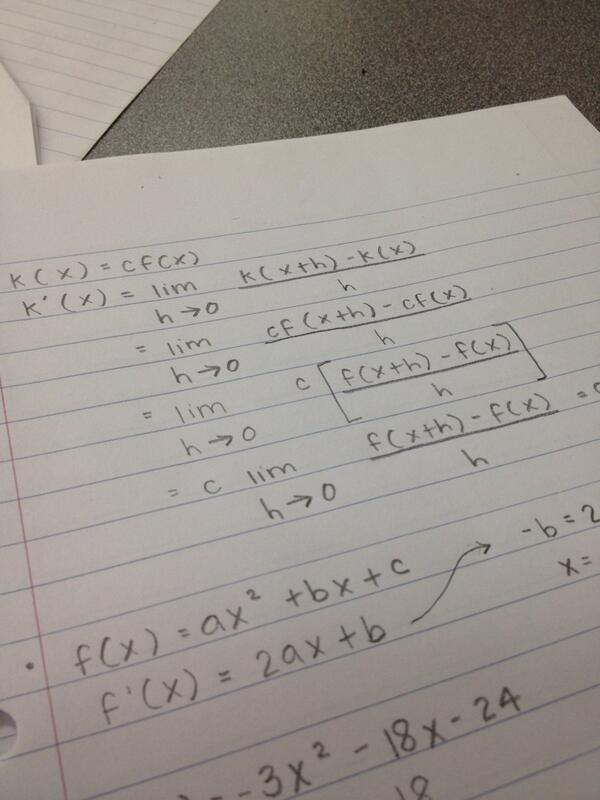 K(x) = cf(x)
K'(x) = lim h→0 K(x+h) - K(x) / h
= lim h→0 cf(x+h) - cf(x) / h
= lim h→0 c [ f(x+h) - f(x) / h ]
= c lim h→0 f(x+h) - f(x) / h =
• f(x) = ax² + bx + c
f'(x) = 2ax + b → -b = 2
x =
= -3x² - 18x - 24
18